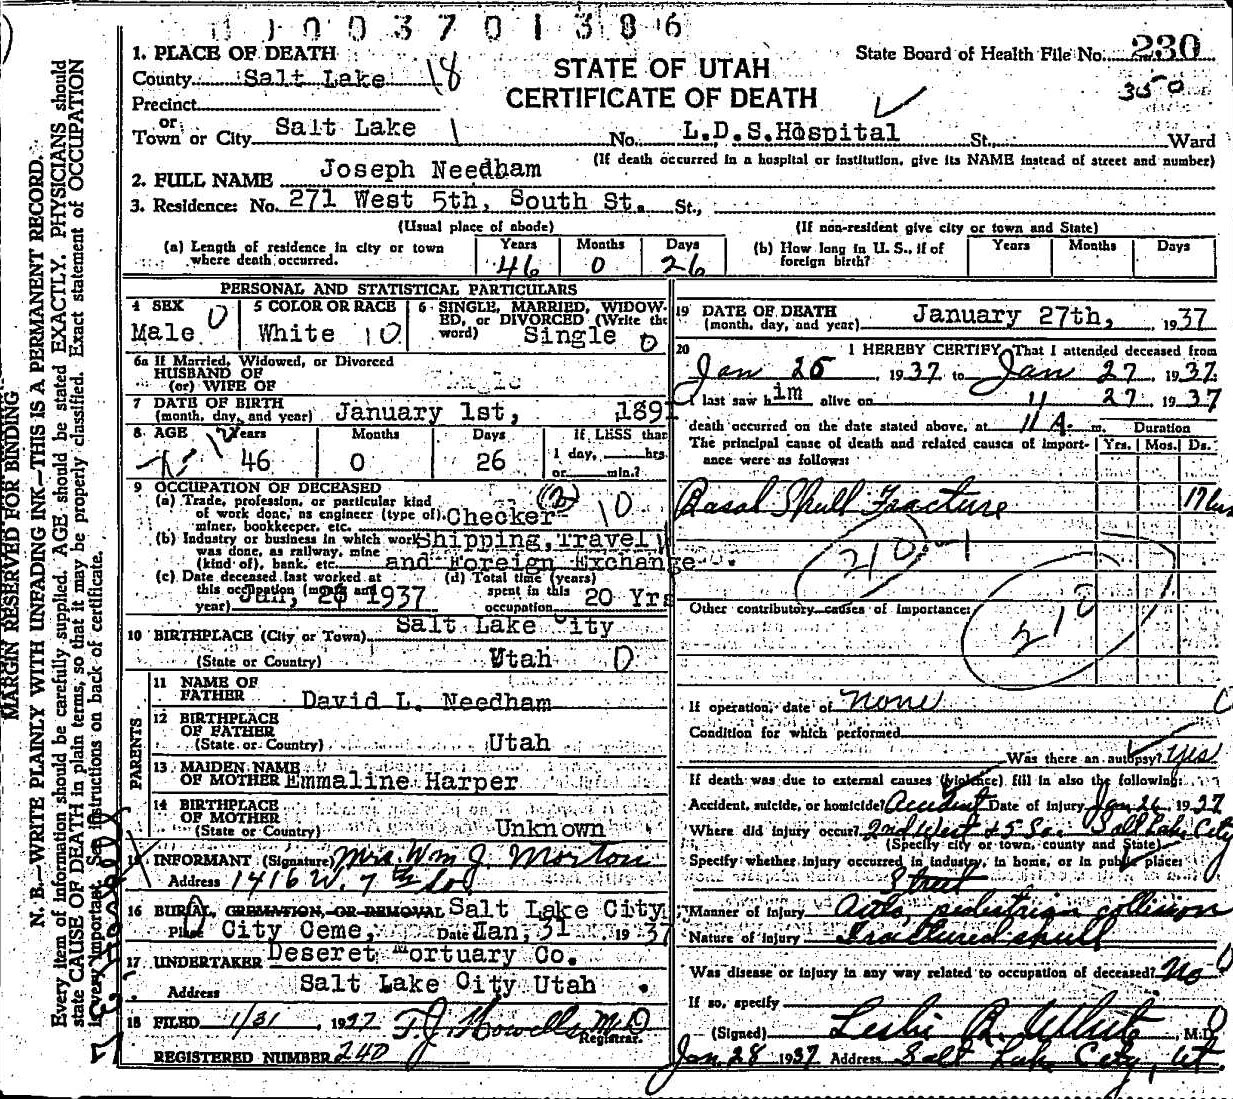 1 0 0 3 7 0 1 3 8 6
1. PLACE OF DEATH
State Board of Health File No. 230
County Salt Lake 18
STATE OF UTAH
350
Precinct
CERTIFICATE OF DEATH
or
Town or City Salt Lake 1 No. L.D.S.Hospital St., Ward
(If death occurred in a hospital or institution, give its NAME instead of street and number)
2. FULL NAME Joseph Needham
3. Residence: No. 271 West 5th, South St. St.,
(Usual place of abode) (If non-resident give city or town and State)
(a) Length of residence in city or town where death occurred. Years 46 Months 0 Days 26
(b) How long in U. S., if of foreign birth? Years Months Days
PERSONAL AND STATISTICAL PARTICULARS
4 SEX Male 0
5 COLOR OR RACE White 10
6 SINGLE, MARRIED, WIDOW-
ED, or DIVORCED (Write the
word) Single 0
6a If Married, Widowed, or Divorced
HUSBAND OF
(or) WIFE OF
7 DATE OF BIRTH
(month, day, and year) January 1st, 1891
8 AGE Years 46 Months 0 Days 26 If LESS than
1 day, hrs.
or min.?
9 OCCUPATION OF DECEASED
(a) Trade, profession, or particular kind
of work done, as engineer (type of), Checker 10
miner, bookkeeper, etc.
(b) Industry or business in which work Shipping, Travel
was done, as railway, mine
(kind of), bank, etc. and Foreign Exchange.
(c) Date deceased last worked at
this occupation (month and
year) Jan, 26 1937
(d) Total time (years)
spent in this
occupation 20 Yrs
10 BIRTHPLACE (City or Town) Salt Lake City
(State or Country) Utah 0
PARENTS
11 NAME OF
FATHER David L. Needham
12 BIRTHPLACE
OF FATHER
(State or Country) Utah
13 MAIDEN NAME
OF MOTHER Emmaline Harper
14 BIRTHPLACE
OF MOTHER
(State or Country) Unknown
15 INFORMANT (Signature) Mrs. Wm J. Morton
Address 1416 W. 7th So
16 BURIAL, CREMATION, OR REMOVAL Salt Lake City
Place City Ceme, Date Jan, 31 1937
17 UNDERTAKER Deseret Mortuary Co.
Address Salt Lake City Utah .
18 FILED 1/31, 1937 F. J. Howells M D
Registrar.
REGISTERED NUMBER 240
19 DATE OF DEATH
(month, day, and year) January 27th, 1937
20 I HEREBY CERTIFY, That I attended deceased from
Jan 26, 1937 to Jan 27, 1937
I last saw him alive on 11 27 1937
death occurred on the date stated above, at 11 A. m. Duration
The principal cause of death and related causes of import-
ance were as follows: Yrs. Mos. Ds.
Basal Skull Fracture
210-1
Other contributory causes of importance:
210
If operation, date of none
Condition for which performed
Was there an autopsy? yes
If death was due to external causes (violence) fill in also the following:
Accident, suicide, or homicide? Accident Date of injury Jan 26 1937
Where did injury occur? 2nd West & 5 So. Salt Lake City
(Specify city or town, county and State)
Specify whether injury occurred in industry, in home, or in public place:
Street
Manner of injury Auto, pedestrian collision
Nature of injury Fractured skull
Was disease or injury in any way related to occupation of deceased? No
If so, specify
(Signed) Leslie B. White, M.D.
Jan. 28 1937 Address Salt Lake City, Ut.
MARGIN RESERVED FOR BINDING
N. B.—WRITE PLAINLY WITH UNFADING INK—THIS IS A PERMANENT RECORD.
Every item of information should be carefully supplied. AGE should be stated EXACTLY. PHYSICIANS should
state CAUSE OF DEATH in plain terms, so that it may be properly classified. Exact statement of OCCUPATION
is very important. See instructions on back of certificate.